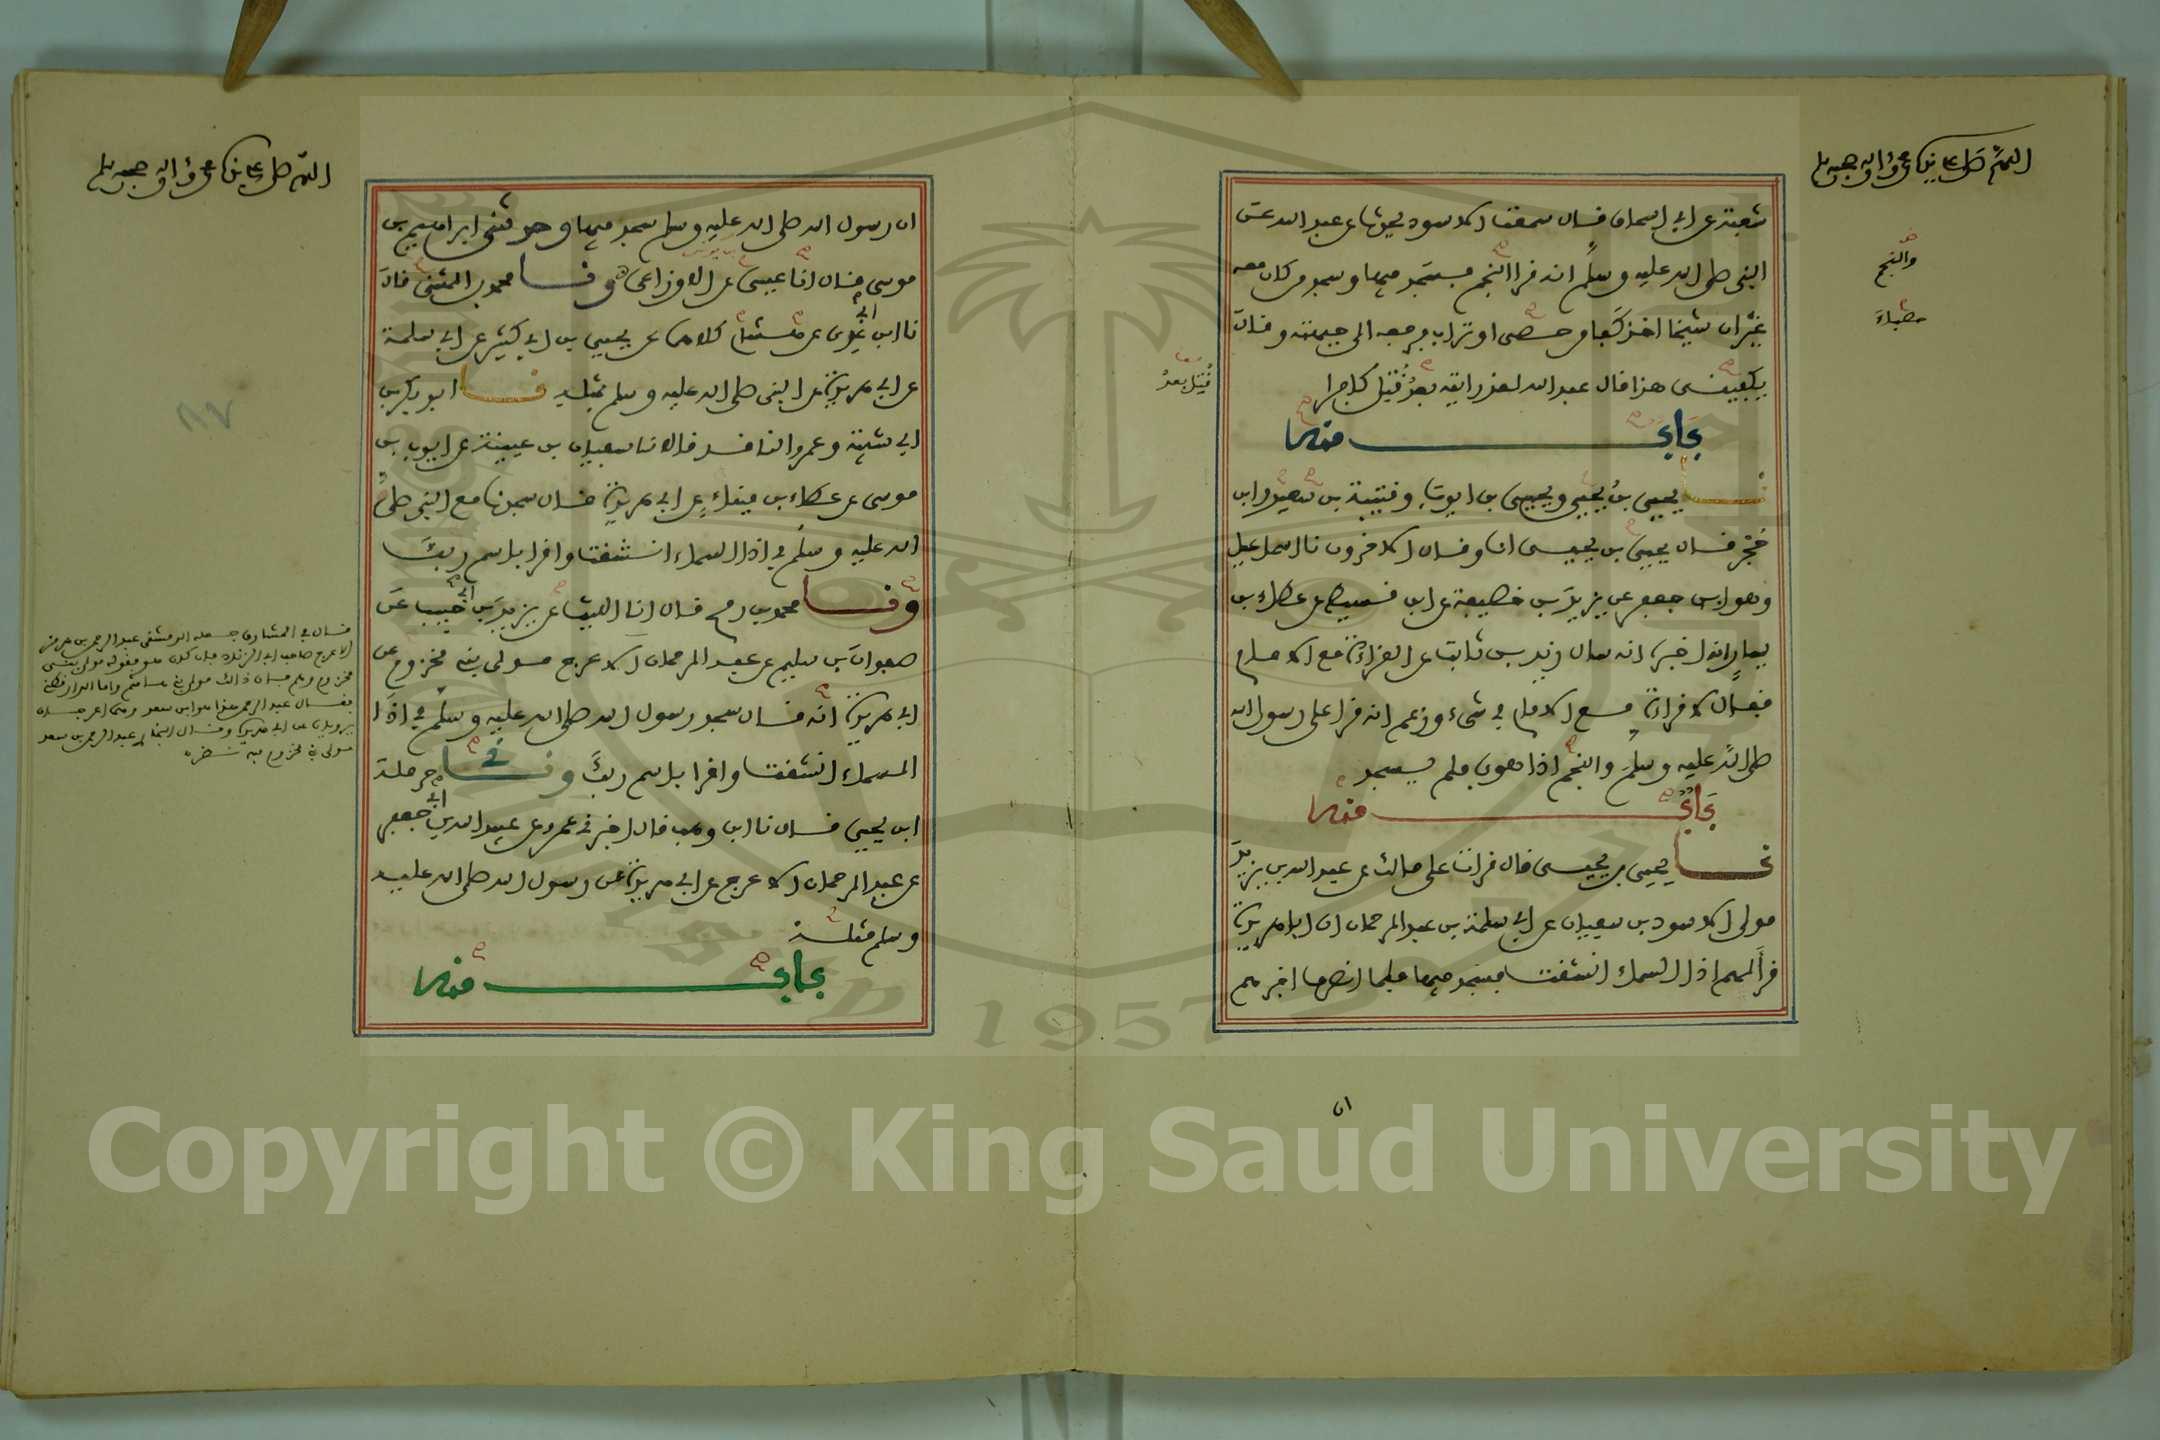 اللهم صل على نبينا محمد واله وصحبه وسلم
شعبة عن ابي اسحاق قال سمعت الاسود يحدث عن عبد الله عن
النبي صلى الله عليه وسلم انه قرا والنجم فسجد فيها وسجد من كان معه
غير ان شيخا اخذ كفا من حصى او تراب فرفعه الى جبهته وقال
يكفيني هذا قال عبد الله لقد رايته بعد قتل كافرا
باب منه
نا يحيى بن يحيى ويحيى بن ايوب وقتيبة بن سعيد وابن
حجر قال يحيى بن يحيى انا وقال الاخرون نا اسماعيل
وهو ابن جعفر عن يزيد بن خصيفة عن ابن قسيط عن عطاء بن
يسار انه اخبره انه سال زيد بن ثابت عن القراءة مع الامام
فقال لا قراءة مع الامام في شيء وزعم انه قرا على رسول الله
صلى الله عليه وسلم والنجم اذا هوى فلم يسجد
باب منه
نا يحيى بن يحيى قال قرات على مالك عن عبد الله بن يزيد
مولى الاسود بن سفيان عن ابي سلمة بن عبد الرحمان ان ابا هريرة
قرا لهم اذا السماء انشقت فسجد فيها فلما انصرف اخبرهم
ان
والنجم
حصباء
قتل بعد
اللهم صل على نبينا محمد واله وصحبه وسلم
ان رسول الله صلى الله عليه وسلم سجد فيها وحدثني ابراهيم بن
موسى قال انا عيسى عن الاوزاعي ونا محمد بن المثنى قال
نا ابن ابي عدي عن هشام كلاهما عن يحيى بن ابي كثير عن ابي سلمة
عن ابي هريرة عن النبي صلى الله عليه وسلم بمثله نا ابو بكر بن
ابي شيبة وعمرو الناقد قالا نا سفيان بن عيينة عن ايوب بن
موسى عن عطاء بن ميناء عن ابي هريرة قال سجدنا مع النبي صلى
الله عليه وسلم في اذا السماء انشقت واقرا باسم ربك
ونا محمد بن رمح قال انا الليث عن يزيد بن ابي حبيب عن
صفوان بن سليم عن عبد الرحمان الاعرج مولى بني مخزوم عن
ابي هريرة انه قال سجد رسول الله صلى الله عليه وسلم في اذا
السماء انشقت واقرا باسم ربك وحدثني حرملة
ابن يحيى قال نا ابن وهب قال اخبرني عمرو عن عبيد الله بن ابي جعفر
عن عبد الرحمان الاعرج عن ابي هريرة عن رسول الله صلى الله عليه
وسلم مثله
باب منه
قال في المشارق جعله الدمشقي عبد الرحمن بن هرمز
مخزوم
فقال عبد الرحمن هذا هو ابن سعد
مولى بني مخزوم
٨٧
Copyright © King Saud University
1957